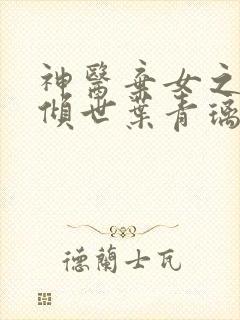 神醫棄女之
傾世葉青璃
德蘭士瓦